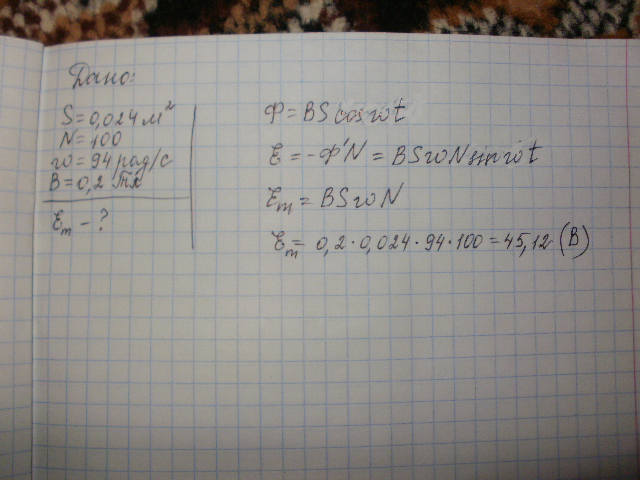 Дано:
S = 0,024 м²
N = 100
ω = 94 рад/с
B = 0,2 Тл
Ɛm - ?
Φ = BS cos ωt
Ɛ = -Φ'N = BSωN sin ωt
Ɛm = BSωN
Ɛm = 0,2 · 0,024 · 94 · 100 = 45,12 (В)